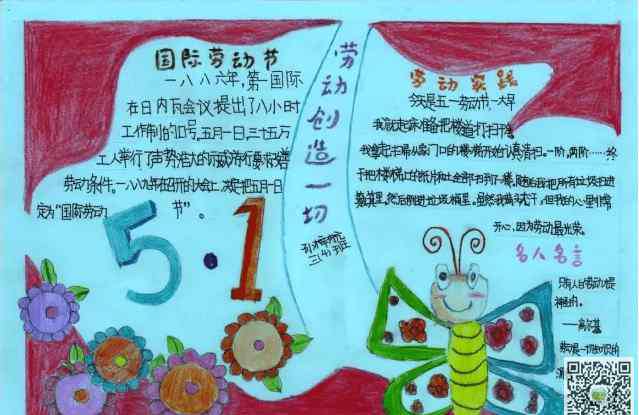 国际劳动节
一八八六年,第一国际
在日内瓦会议提出了八小时
工作制的口号。五月一日,三十五万
工人举行了声势浩大的示威游行,要求改善
劳动条件。一八八九年召开的大会上,决定把五月一日
定为“国际劳动 节”。
5·1
劳动创造一切
三(4)班
劳动实践
今天是五一劳动节,一大早
我就起床准备把楼道打扫干净。
我拿起扫帚从家门口的楼梯开始认真清扫。一阶,两阶……终
于把楼梯口的纸片和土全部扫到了
然后倒进垃圾桶里。虽然我满头大汗,但我的心里非常
开心,因为劳动最光荣。
名人名言
只有人的劳动才是
神圣的。
——高尔基
劳动是一切知识的